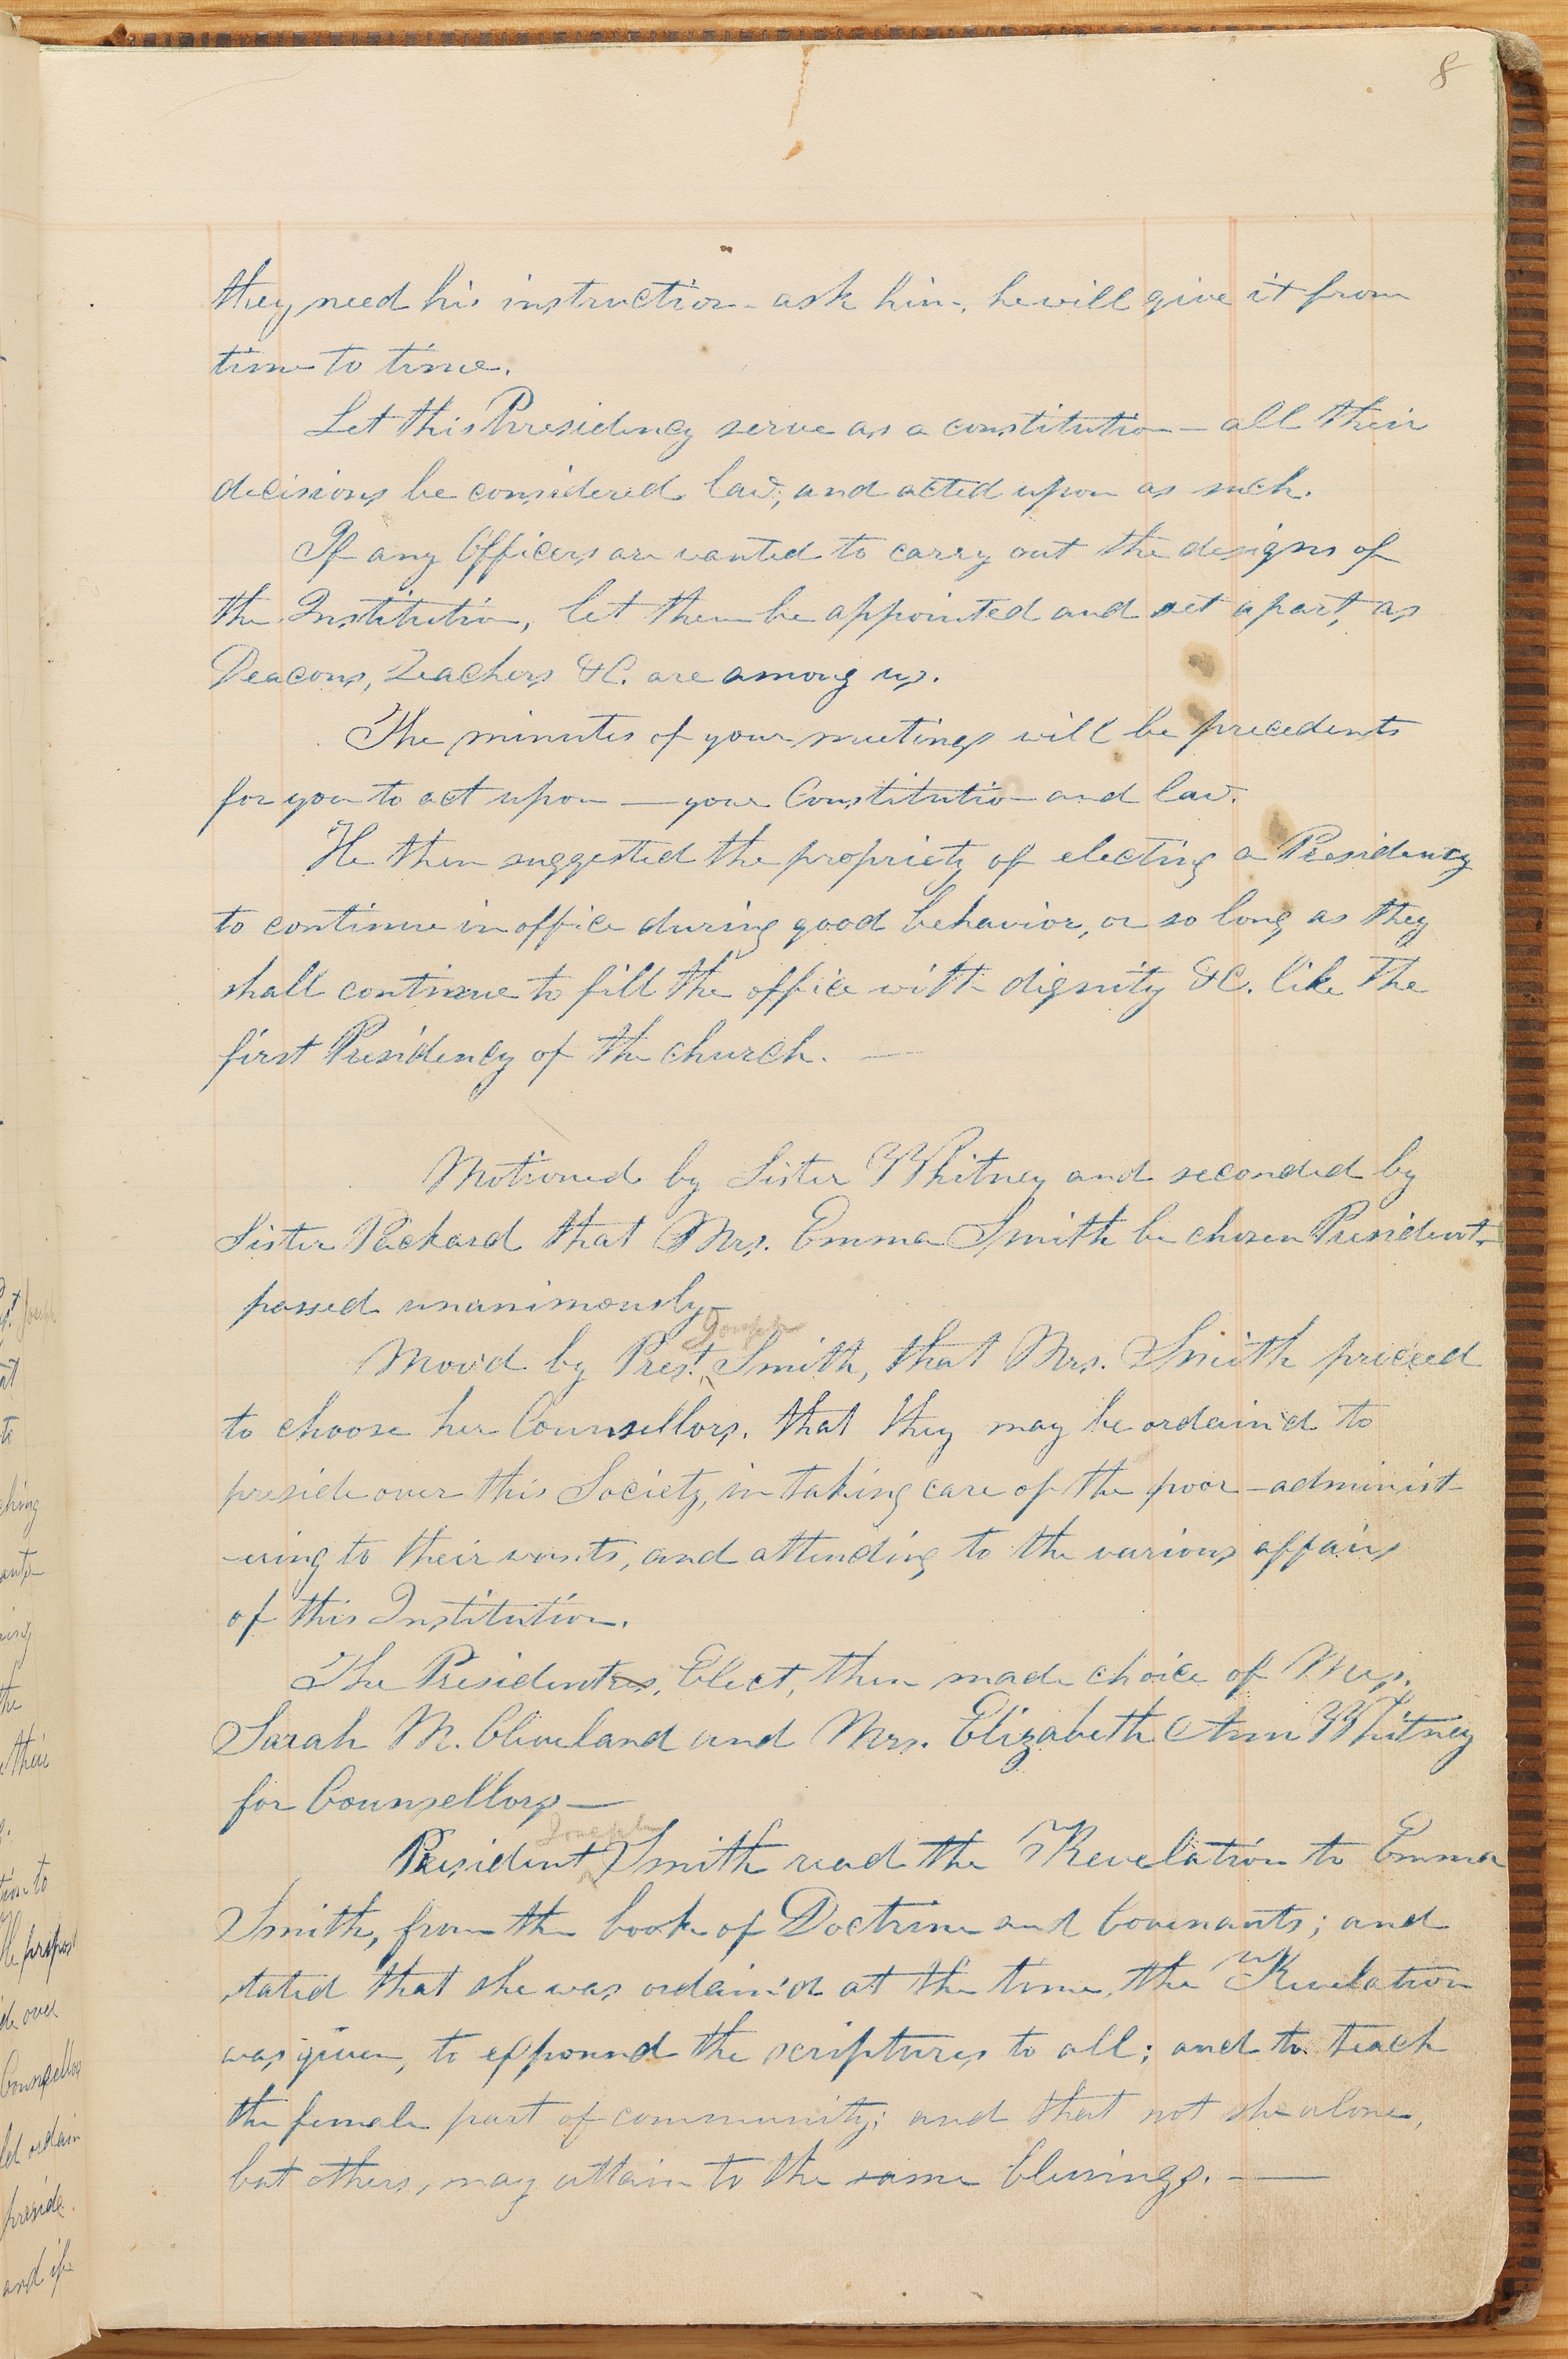 8
they need his instruction - ask him, he will give it from
time to time.
Let this Presidency serve as a constitution - all their
decisions be considered law; and acted upon as such.
If any Officers are wanted to carry out the designs of
the Institution, let them be appointed and set apart, as
Deacons, Teachers &C. are among us.
The minutes of your meetings will be precedents
for you to act upon — your Constitution and law.
He then suggested the propriety of electing a Presidency
to continue in office during good behavior, or so long as they
shall continue to fill the office with dignity &C. like the
first Presidency of the church. —
Motioned by Sister Whitney and seconded by
Sister Packard that Mrs. Emma Smith be chosen President-
passed unanimously-
Joseph
Mov'd by Prest. Smith, that Mrs. Smith proceed
to choose her Counsellors, that they may be ordain'd to
preside over this Society, in taking care of the poor - administ-
-ering to their wants, and attending to the various affairs
of this Institution.
The Presidentess, Elect, then made choice of Mrs.
Sarah M. Cleveland and Mrs. Elizabeth Ann Whitney
for Counsellors —
Joseph
President Smith read the Revelation to Emma
Smith, from the book of Doctrine and Covenants; and
stated that she was ordain'd at the time, the Revelation
was given, to expound the scriptures to all; and to teach
the female part of community; and that not she alone,
but others, may attain to the same blessings. —